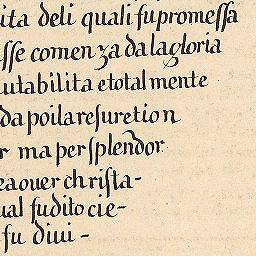 ita deli quali fu promessa
sse comenza da la gloria
utabilita e total mente
da poi la resuretion
r ma per splendor
ea ouer christa-
ual fu dito cie-
fu diui-